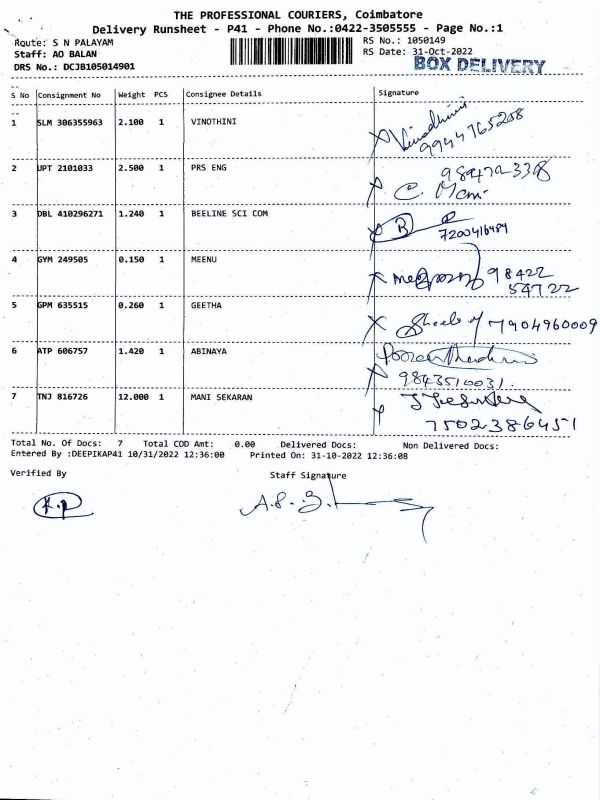 THE PROFESSIONAL COURIERS, Coimbatore
Delivery Runsheet - P41 - Phone No.:0422-3505555 - Page No.:1
Route: S N PALAYAM
RS No.: 1050149
Staff: AO BALAN
RS Date: 31-Oct-2022
DRS No.: DCJB105014901
BOX DELIVERY
S No Consignment No Weight PCS Consignee Details Signature
1 SLM 306355963 2.100 1 VINOTHINI Vinodhini
9944765258
2 JPT 2101033 2.500 1 PRS ENG
C. Mani
3 DBL 410296271 1.240 1 BEELINE SCI COM
7200416484
4 GYM 249505 0.150 1 MEENU 98422
54722
5 GPM 635515 0.260 1 GEETHA 7904960009
6 ATP 606757 1.420 1 ABINAYA
9843510031.
7 TNJ 816726 12.000 1 MANI SEKARAN
7502386451
Total No. Of Docs: 7 Total COD Amt: 0.00 Delivered Docs: Non Delivered Docs:
Entered By :DEEPIKAP41 10/31/2022 12:36:00 Printed On: 31-10-2022 12:36:08
Verified By Staff Signature